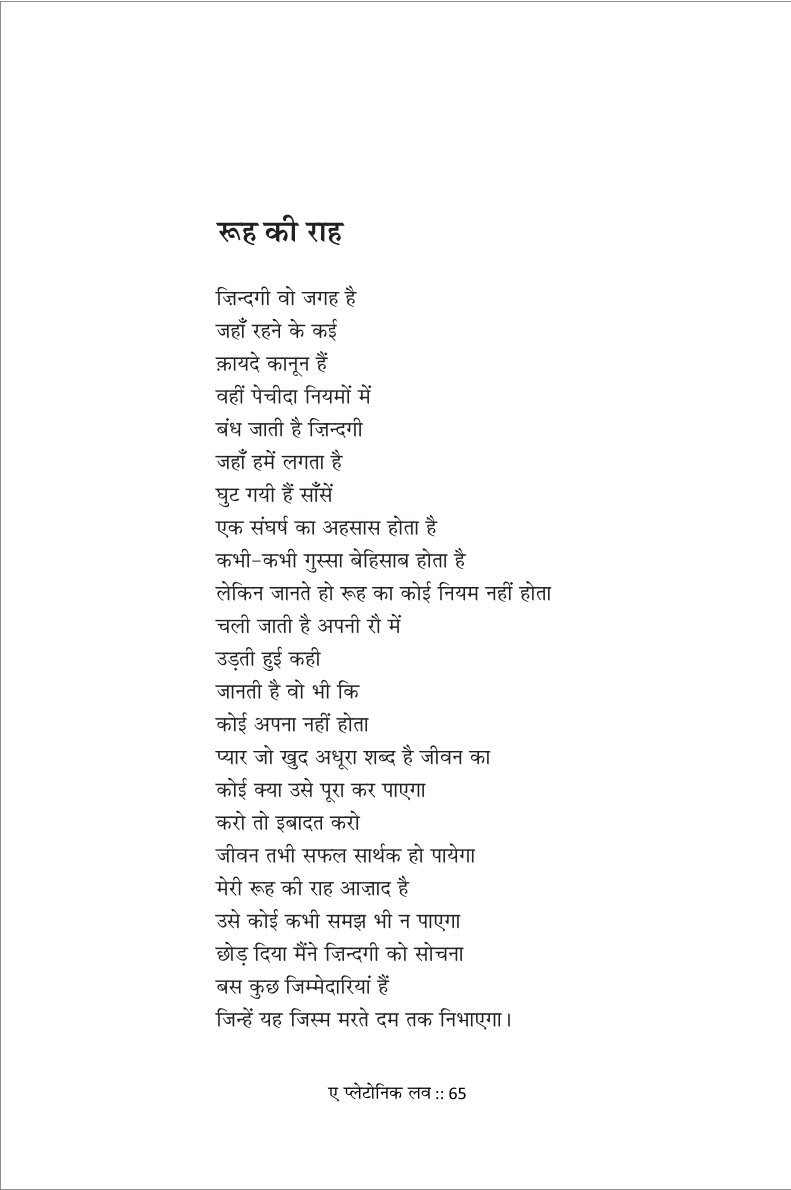 रूह की राह
ज़िन्दगी वो जगह है
जहाँ रहने के कई
क़ायदे कानून हैं
वहीं पेचीदा नियमों में
बंध जाती है ज़िन्दगी
जहाँ हमें लगता है
घुट गयी हैं साँसें
एक संघर्ष का अहसास होता है
कभी-कभी गुस्सा बेहिसाब होता है
लेकिन जानते हो रूह का कोई नियम नहीं होता
चली जाती है अपनी रौ में
उड़ती हुई कही
जानती है वो भी कि
कोई अपना नहीं होता
प्यार जो खुद अधूरा शब्द है जीवन का
कोई क्या उसे पूरा कर पाएगा
करो तो इबादत करो
जीवन तभी सफल सार्थक हो पायेगा
मेरी रूह की राह आज़ाद है
उसे कोई कभी समझ भी न पाएगा
छोड़ दिया मैंने ज़िन्दगी को सोचना
बस कुछ जिम्मेदारियां हैं
जिन्हें यह जिस्म मरते दम तक निभाएगा।
ए प्लेटोनिक लव :: 65